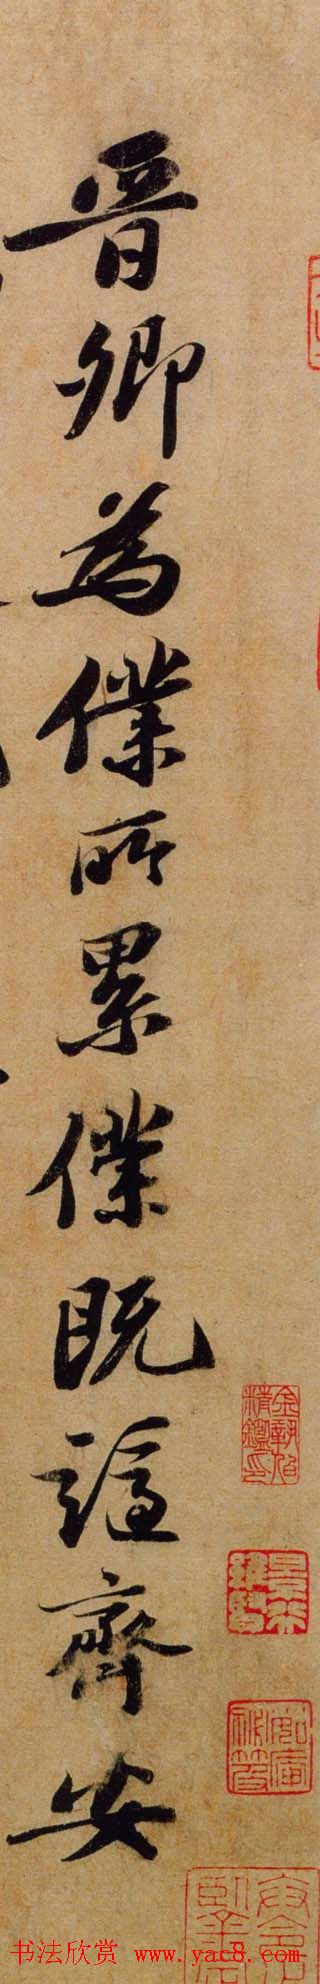 晉卿為僕所累僕既謫齊安
書法欣賞 www.yac8.com